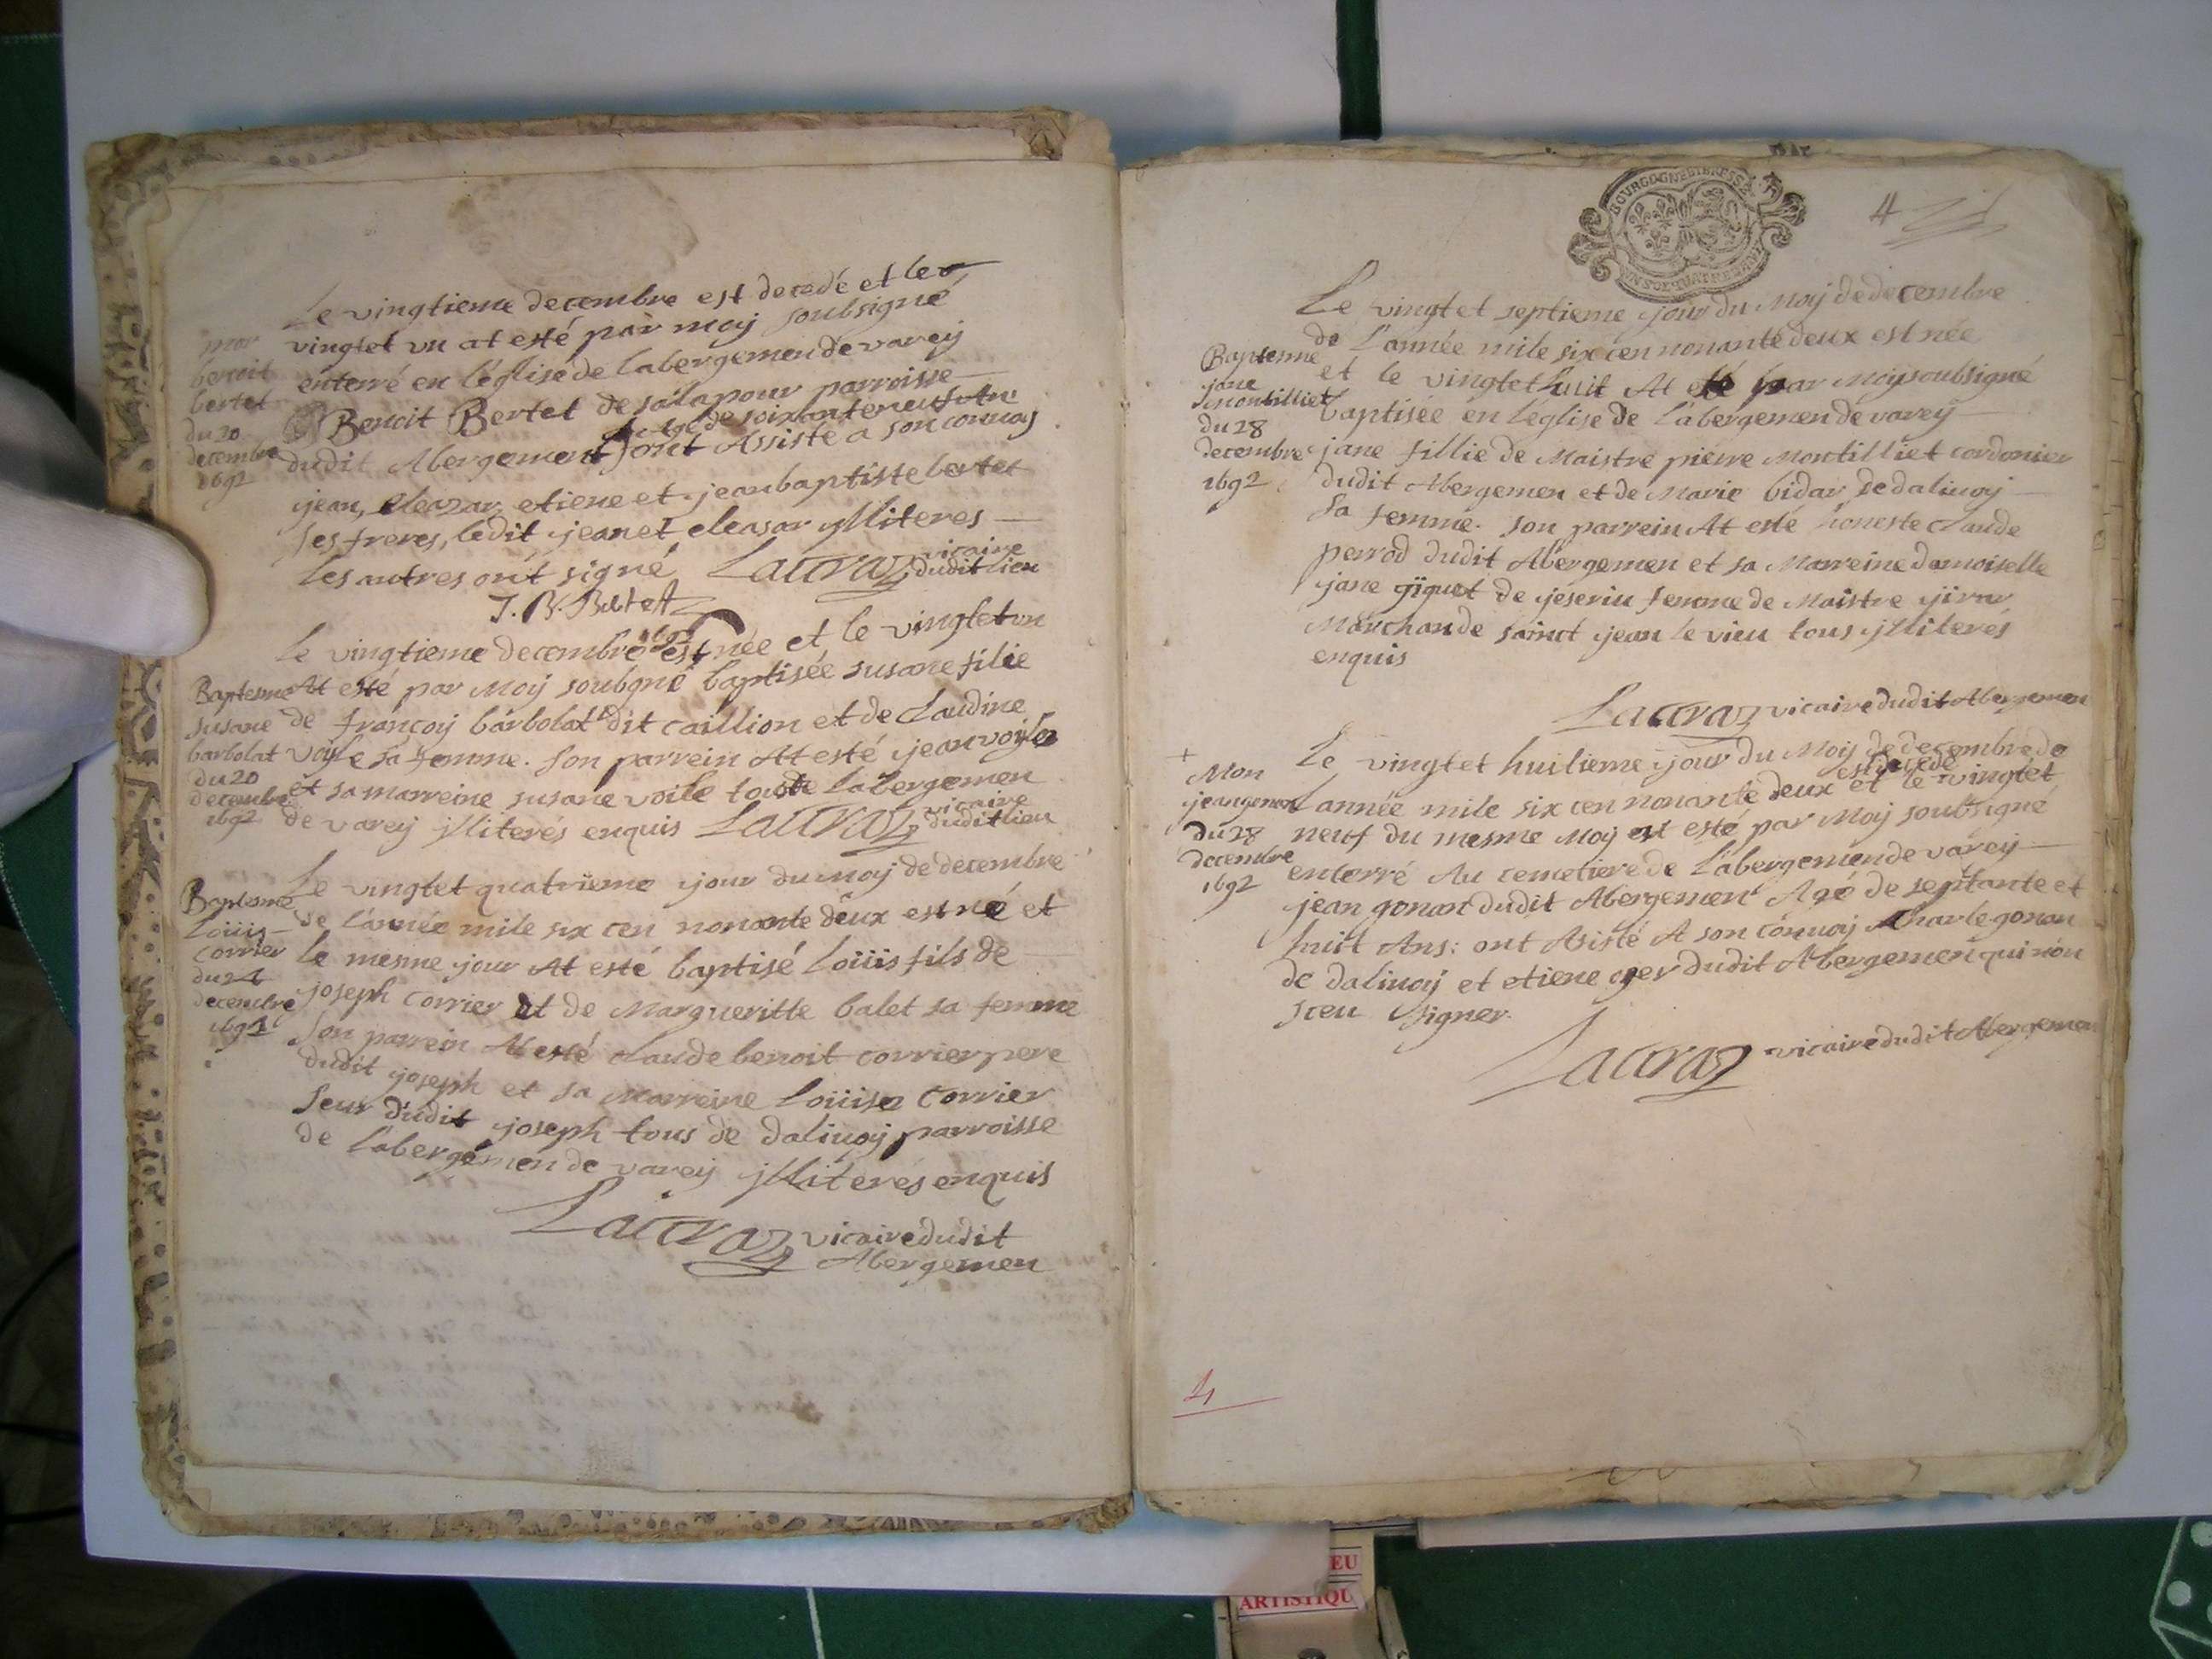 Le vingtieme decembre est decedé et le
vinglet vn at esté par moy soubsigné
enterré en l'église de labergemen de varey
Benoit Bertet de sa la pour parroisse
Agé de soixante neuf An
dudit Abergement ont Assiste a son convoy
jean, eleazar, etiene et jean baptiste bertet
ses freres, ledit jean et eleasar jlliteres
les autres ont signé Lacraz vicaire
dudit lieu
J. B. Bertet
mor
benoit
bertet
du 20
decembre
1692
Le vingtieme decembre 1692 est née et le vinglet un
At esté par Moy soubgné baptisée susane filie
de françoy barbolat dit caillion et de Claudine
voile sa femme. son parrein At esté jean voile
et sa marreine susane voile tous de labergemen
de varey jlliterés enquis Lacraz vicaire
dudit lieu
Baptesme
susane
barbolat
du 20
decembre
1692
Le vinglet quatrieme jour du moy de decembre
de l'année mile six cen nonante deux est né et
le mesme jour At esté baptisé loüis fils de
joseph corrier et de Margueritte balet sa femme
son parrein At esté Claude benoit corrier pere
dudit joseph et sa Marreine loüise corrier
seur dudit joseph tous de dalivoy parroisse
de l'abergemen de varey jlliterés enquis
Lacraz vicaire dudit
Abergemen
Baptesme
loüis
corrier
du 24
decembre
1692
BOVRGOGNE ET BRESSE
4
Le vinglet septieme jour du Moy de decembre
de l'année mile six cen nonante deux est née
et le vinglet huit At esté par Moy soubsigné
baptisée en l'eglise de l'abergemen de varey
jane fillie de Maistre pierre Montilliet cordonier
dudit Abergemen et de Marie bidar de dalivoy
sa femme. son parrein At esté honeste Claude
perrod dudit Abergemen et sa Marreine damoiselle
jane giguet de jeseriu femme de Maistre jirar
Marchan de sainct jean le vieu tous jlliterés
enquis
Lacraz vicaire dudit Abergemen
Baptesme
jane
Montilliet
du 28
decembre
1692
Le vinglet huitieme jour du Moy de decembre de
est decedé
l'année mile six cen nonante deux et le vinglet
neuf du mesme Moy est esté par Moy soubsigné
enterré Au cemetiere de l'abergemen de varey
jean gonan dudit Abergemen Agé de septante et
huit Ans: ont Asisté A son convoy Charle gonan
de dalivoy et etiene oger dudit Abergemen qui non
sceu signer.
Lacraz vicaire dudit Abergemen
+
Mor
jean gonan
du 28
decembre
1692
4
EU
ARTISTIQU